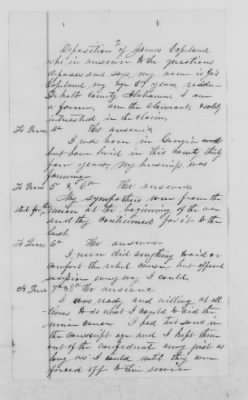 Deposition of James Copeland
who in answer to the questions
deposes and says, my name is Jas
Copeland, my age 57 years, reside
DeKalb County Alabama I am
a farmer, am the Claimant,
interested in the Claim.
To Ques 4th He answers
I was born in Georgia
but have lived in this County thirty
four years, my business was
farming
To Ques 5th & 6th He answers
My sympathies were from the
union at the beginning of the war
and they continued for it to the
last.
To Ques 6th He answers
I never did anything to aid or
comfort the rebel cause but opposed
secession every way I could.
To Ques 7th & 8th He answers
I was ready and willing at all
times to do what I could to aid the
union cause. I had two sons in
the conscript age and I kept them
out of the confederate army just as
long as I could until they were
forced off to the service